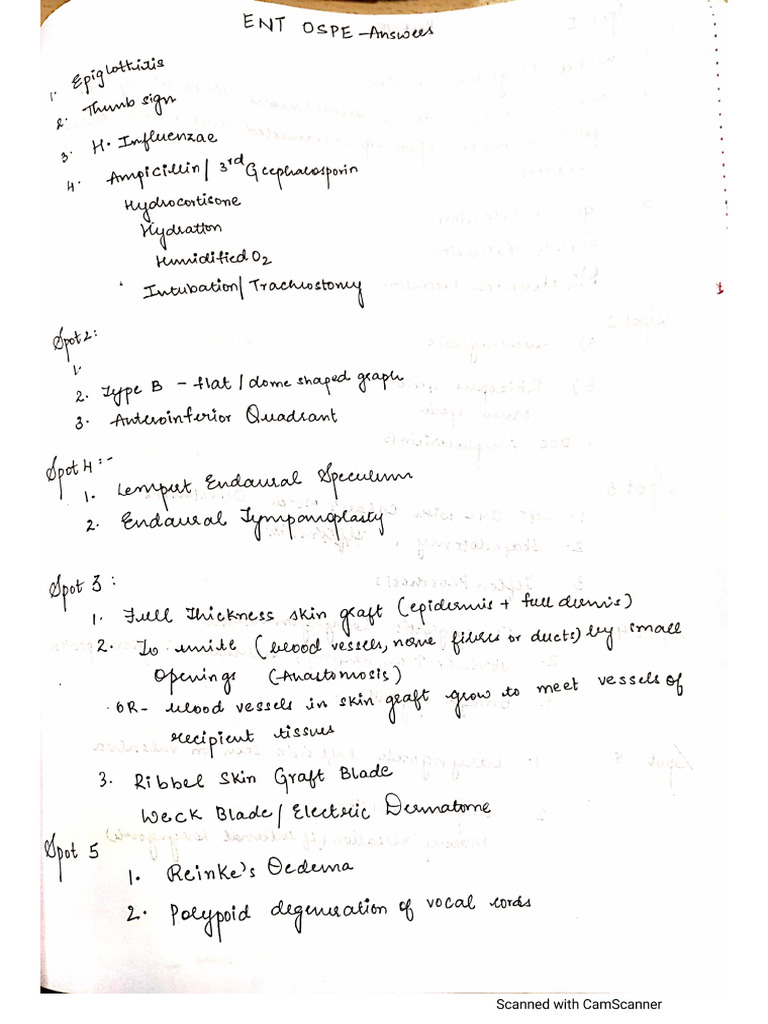 ENT OSPE -Answers
1. Epiglottitis
2. Thumb sign
3. H. Influenzae
4. Ampicillin/ 3rd G cephalosporin
Hydrocortisone
Hydration
Humidified O2
Intubation/ Tracheostomy
Spot 2:
1.
2. Type B - flat / dome shaped graph
3. Anteroinferior Quadrant
Spot 4:-
1. Lempert Endaural Speculum
2. Endaural Tympanoplasty
Spot 3:
1. Full Thickness skin graft (epidermis + full dermis)
2. To unite (blood vessels, nerve fibres or ducts) by small
openings (-Anastomosis)
OR- blood vessels in skin graft grow to meet vessels of
recipient tissues
3. Ribbel Skin Graft Blade
Weck Blade/ Electric Dermatome
Spot 5
1. Reinke's Oedema
2. Polypoid degeneration of vocal cords
Scanned with CamScanner